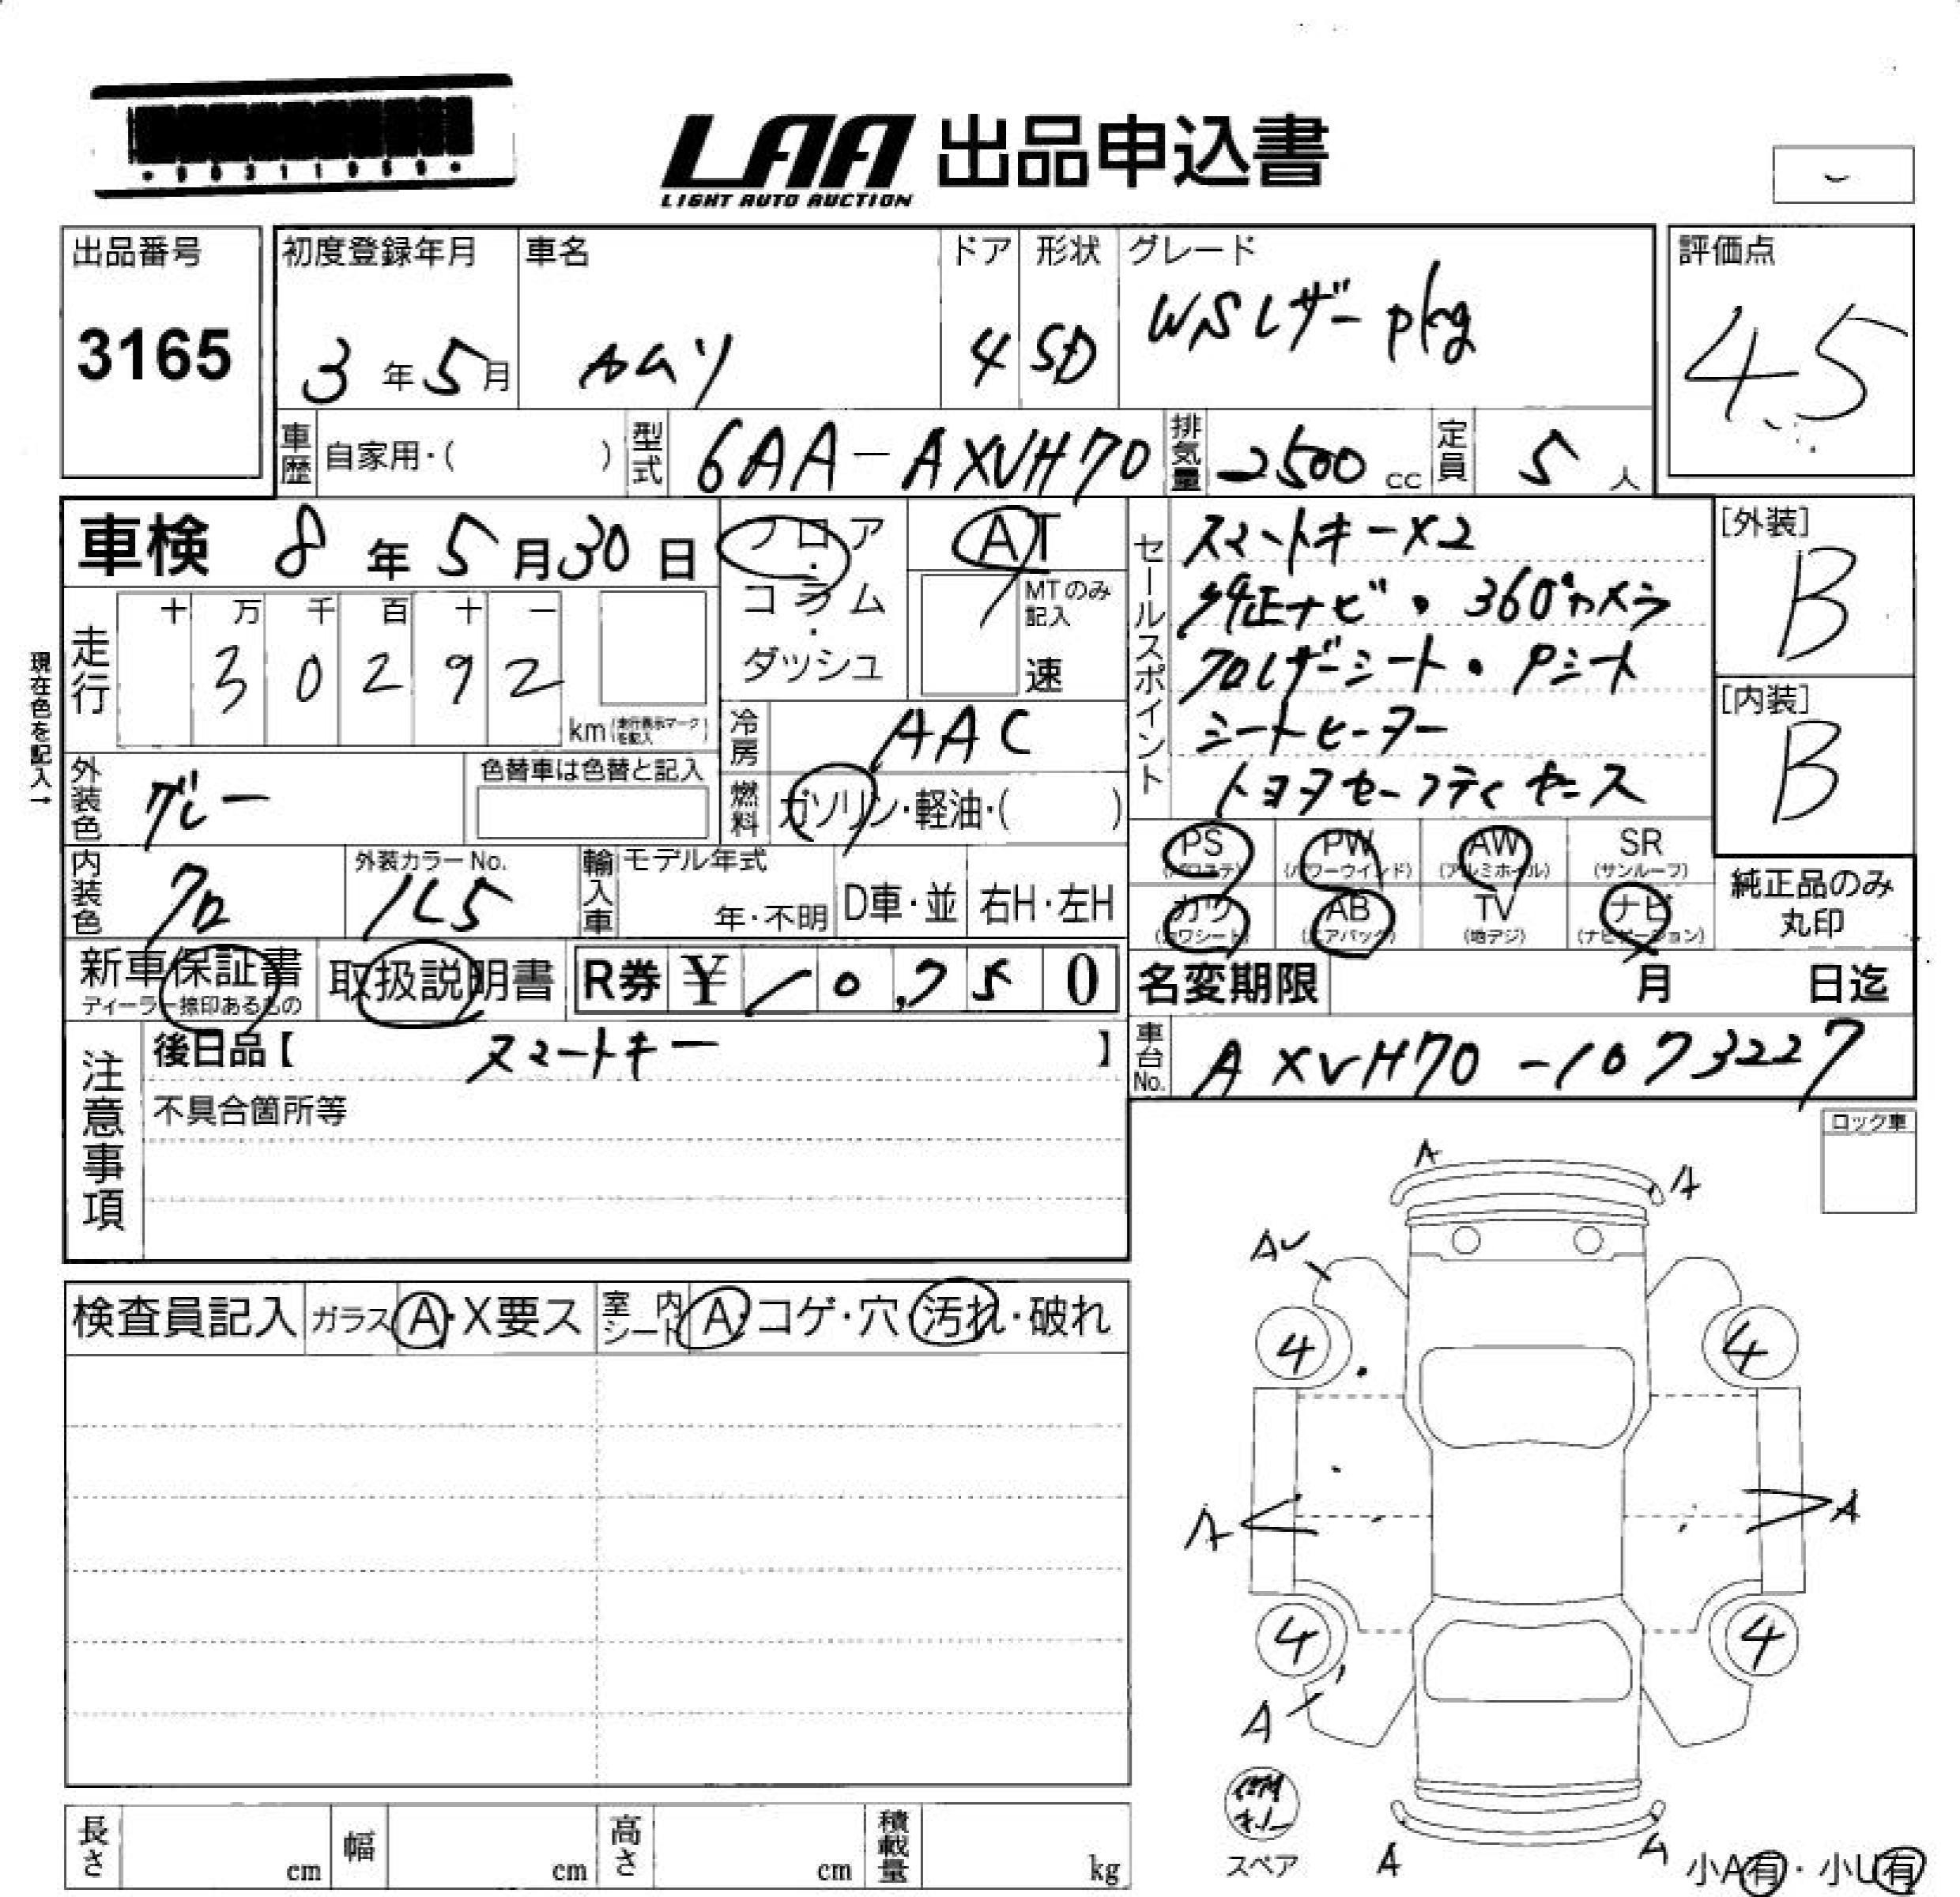 LAA 出品申込書
LIGHT AUTO AUCTION
出品番号
3165
初度登録年月
3年5月
車名
カムリ
ドア
4
形状
SD
グレード
WSレザーpkg
評価点
4.5
車歴 自家用・( )
型式 6AA-AXVH70
排気量 2500 cc
定員 5 人
車検 8年5月30日
フロア・コラム・ダッシュ
AT
MTのみ記入
速
走行
十 万 千 百 十 一
3 0 2 9 2
km (走行表示マークを記入)
現在色を記入→
冷房 AAC
燃料 ガソリン・軽油・( )
外装色 グレー
色替車は色替と記入
内装色 クロ
外装カラーNo.
1L5
輸入車 モデル年式
年・不明
D車・並
右H・左H
セールスポイント
スマートキーX2
純正ナビ・360°カメラ
クロレザーシート・Pシート
シートヒーター
トヨタセーフティセンス
[外装]
B
[内装]
B
PS (パワステ)
PW (パワーウインド)
AW (アルミホイル)
SR (サンルーフ)
カワ (カワシート)
AB (エアバッグ)
TV (地デジ)
ナビ (ナビゲーション)
純正品のみ丸印
新車保証書
ディーラー捺印あるもの
取扱説明書
R券 ¥ 10,750
名変期限 月 日迄
車台No. AXVH70-1073227
注意事項
後日品【 スマートキー 】
不具合箇所等
ロック車
検査員記入
ガラス A・X要ス
室内シート A・コゲ・穴・汚れ・破れ
A
A
AU
4
4
A
A
4
4
A
スペア
A
A
小A有・小U有
長さ cm
幅 cm
高さ cm
積載量 kg